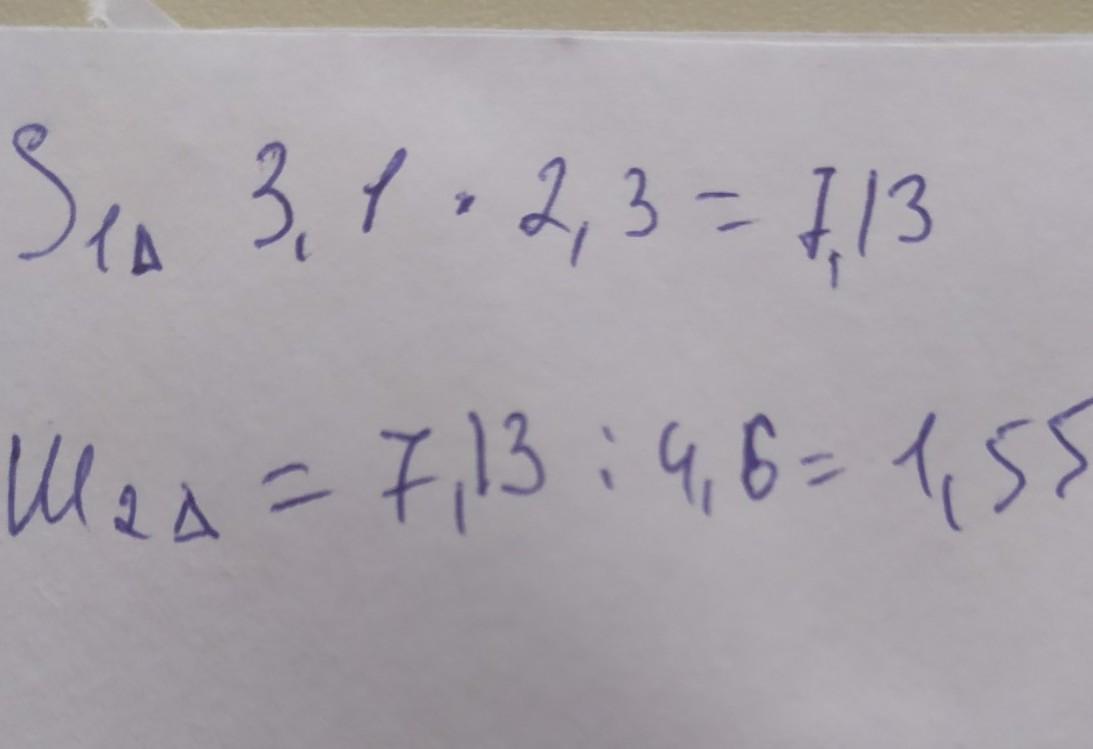 S₁Δ 3,1 · 2,3 = 7,13
Ш₂Δ = 7,13 : 4,6 = 1,55